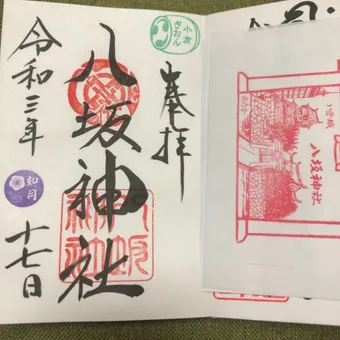 奉拝
小倉
ぎおん
八坂神社
八坂
神社
令和三年
如月
十七日
小倉城
八坂神社